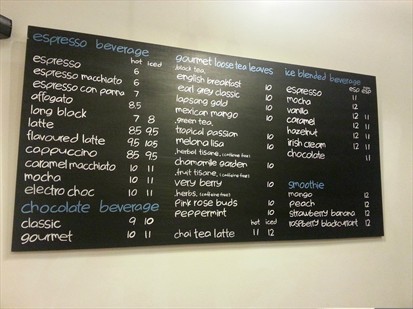 espresso beverage
hot iced
espresso 6
espresso macchiato 6
espresso con panna 7
affogato 8.5
long black 7 8
latte 85 95
flavoured latte 95 105
cappuccino 85 95
caramel macchiato 10 11
mocha 10 11
electro choc 10 11
chocolate beverage
classic 9 10
gourmet 10 11
gourmet loose tea leaves
black tea,
english breakfast 10
earl grey classic 10
lapsang gold 10
mexican mango 10
green tea,
tropical passion 10
melona lisa 10
herbal tisane,
chamomile garden 10
fruit tisane,
very berry 10
herbs,
pink rose buds 10
peppermint 10
hot iced
chai tea latte 11 12
ice blended beverage
espresso 11
mocha 11
vanilla 12 11
caramel 12 11
hazelnut 12 11
irish cream 12 11
chocolate 11
smoothie
mango 12
peach 12
strawberry banana 12
raspberry blackcurrant 12